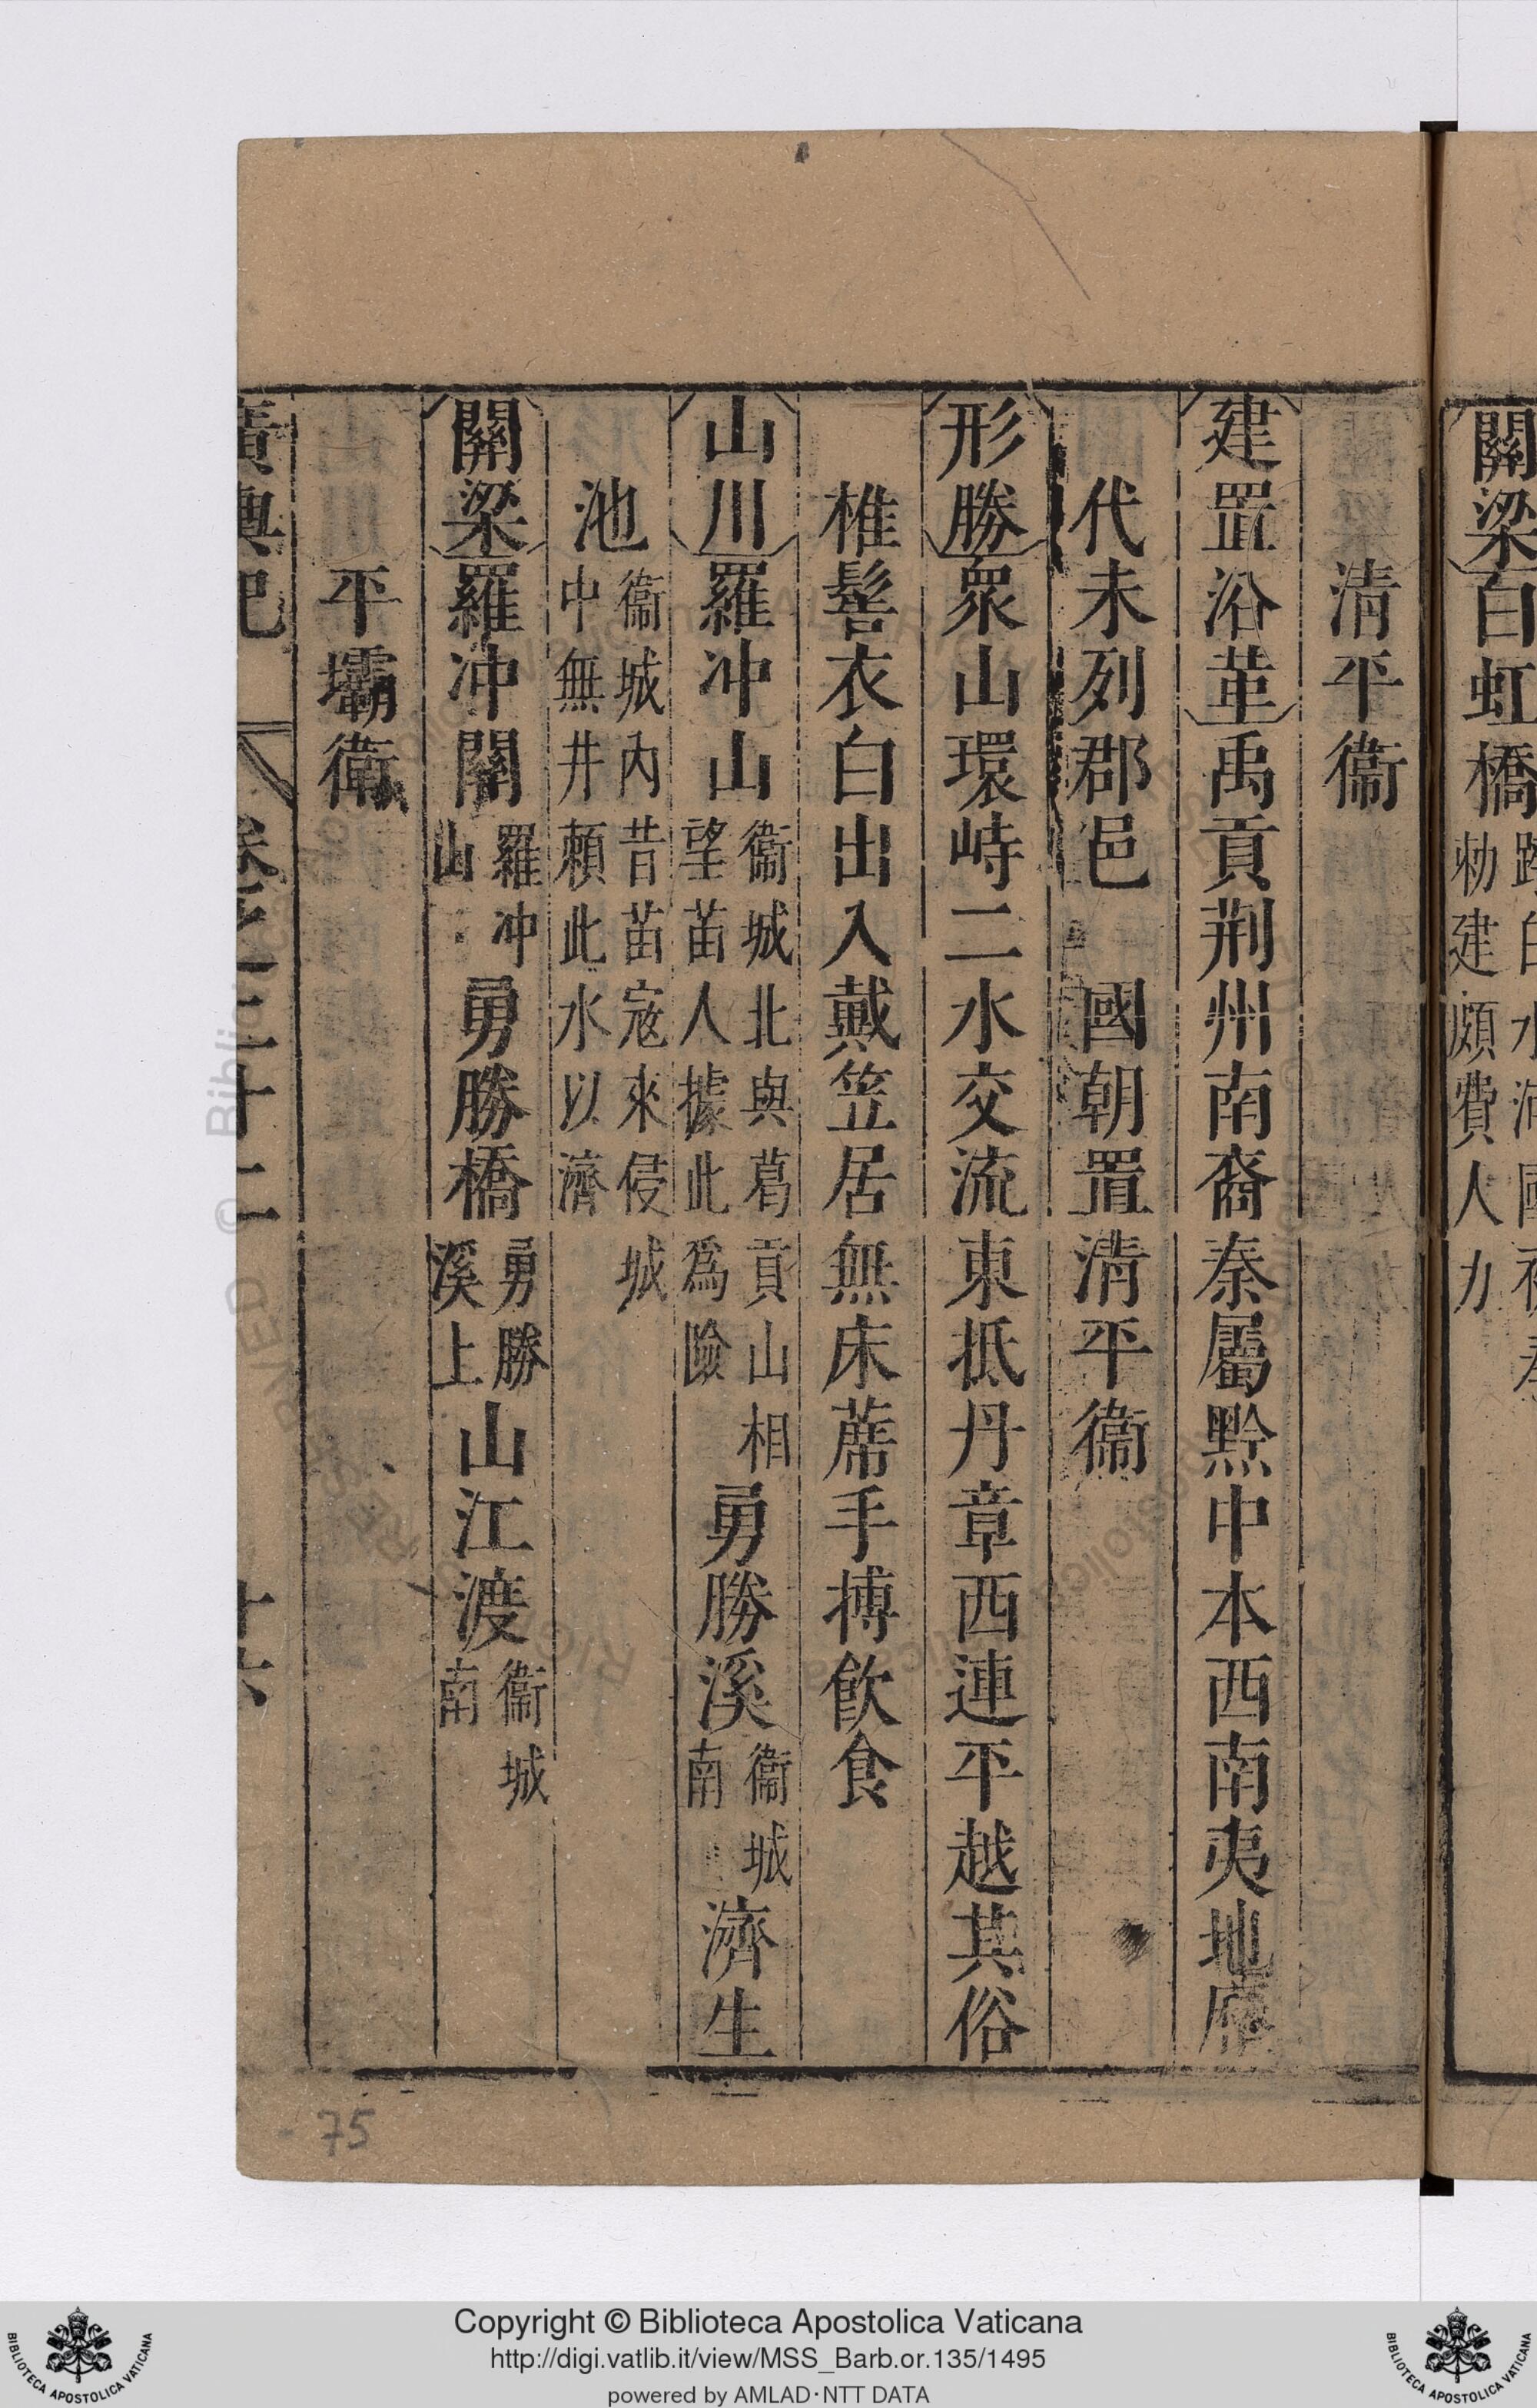 關梁百虹橋
勑建頗費人力
清平衞
建置沿革禹貢荆州南裔秦屬黔中本西南夷地歷
代未列郡邑 國朝置清平衞
形勝衆山環峙二水交流東抵丹章西連平越其俗
椎髻衣白出入戴笠居無床蓆手搏飲食
山川羅冲山衞城北與葛貢山相望苗人據此爲險勇勝溪衞城南濟生
池衞城內昔苗寇來侵城中無井頼此水以濟
關梁羅冲關羅冲山勇勝橋勇勝溪上山江渡衞城南
平壩衛
廣輿記 卷之二十二 十六
75
Copyright © Biblioteca Apostolica Vaticana
http://digi.vatlib.it/view/MSS_Barb.or.135/1495
powered by AMLAD·NTT DATA
BIBLIOTECA APOSTOLICA VATICANA
BIBLIOTECA APOSTOLICA VATICANA